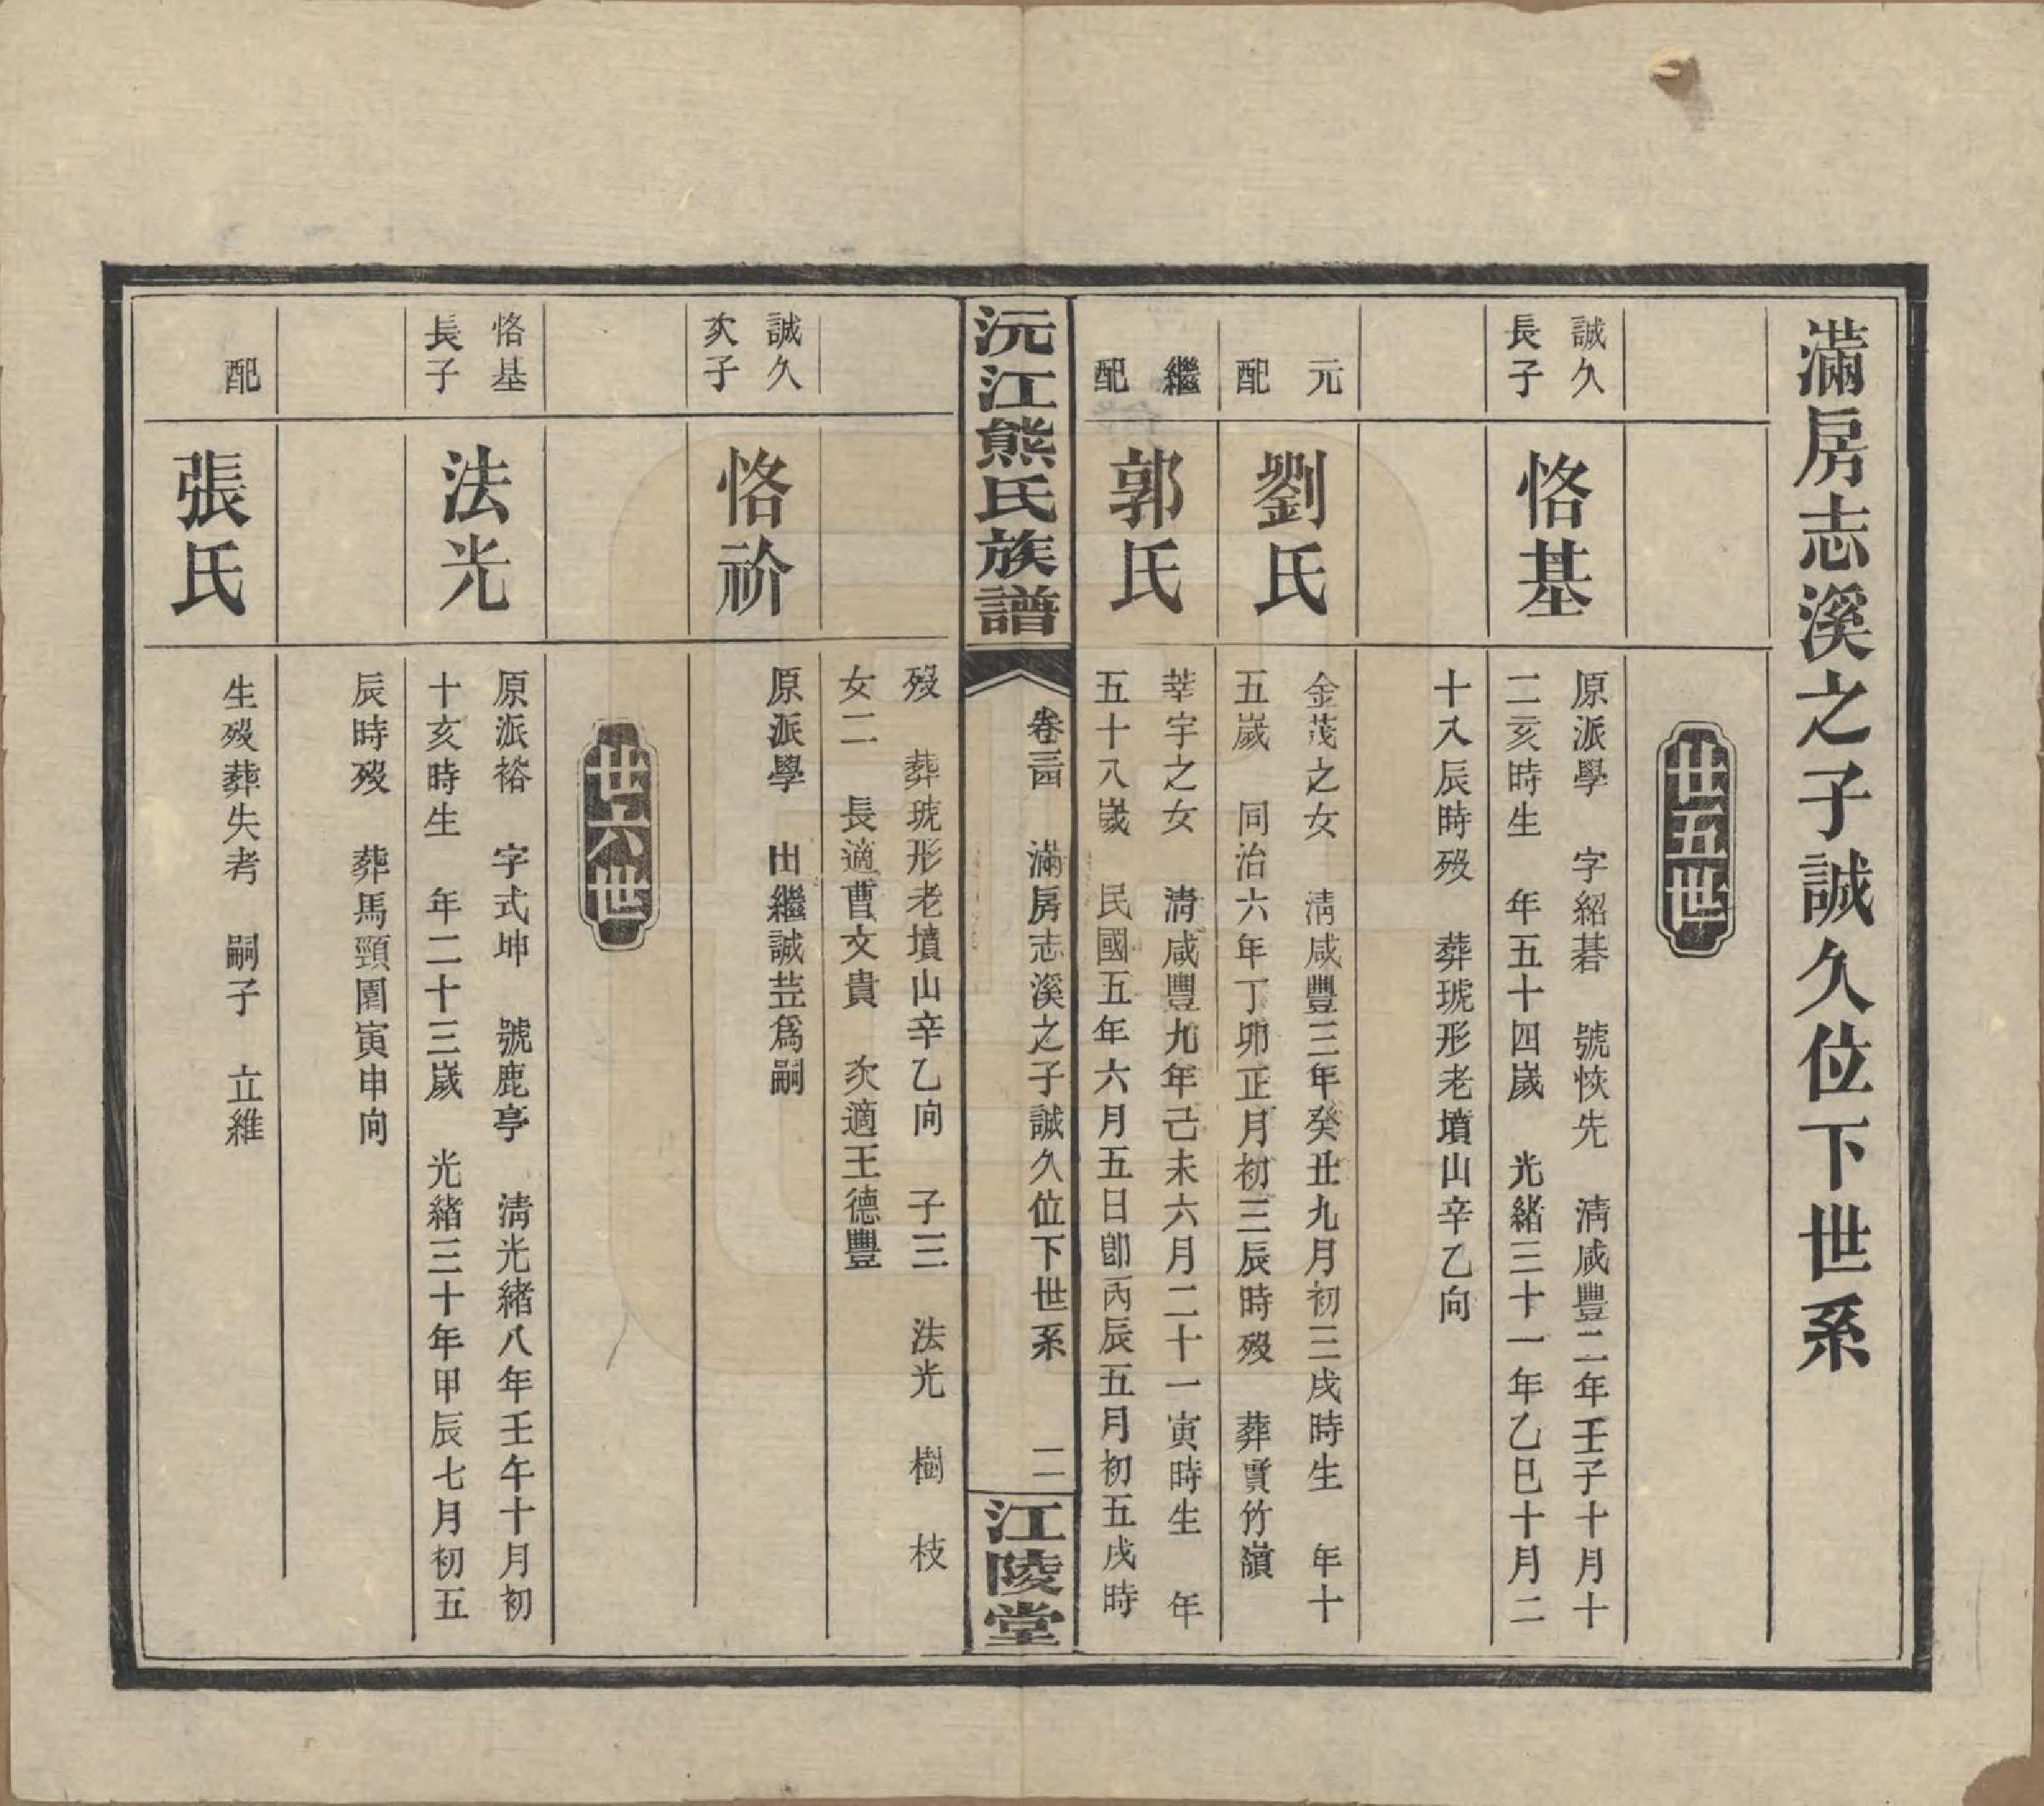 滿房志溪之子誠久位下世系
廿五世
誠久
長子
恪基
原派學　字紹碁　號恢先　淸咸豐二年壬子十月十
二亥時生　年五十四歲　光緖三十一年乙巳十月二
十入辰時歿　葬琥形老墳山辛乙向
元
配
劉氏
金茂之女　淸咸豐三年癸丑九月初三戌時生　年十
五歲　同治六年丁卯正月初三辰時歿　葬實竹嶺
繼
配
郭氏
莘宇之女　淸咸豐九年己未六月二十一寅時生　年
五十八歲　民國五年六月五日卽丙辰五月初五戌時
沅江熊氏族譜
卷三四　滿房志溪之子誠久位下世系　二
江陵堂
歿　葬琥形老墳山辛乙向　子三　法光　樹　枝
女二　長適曹文貴　次適王德豐
誠久
次子
恪祄
原派學　出繼誠荳爲嗣
廿六世
恪基
長子
法光
原派裕　字式坤　號鹿亭　淸光緖八年壬午十月初
十亥時生　年二十三歲　光緖三十年甲辰七月初五
辰時歿　葬馬頸圍寅申向
配
張氏
生歿葬失考　嗣子　立維